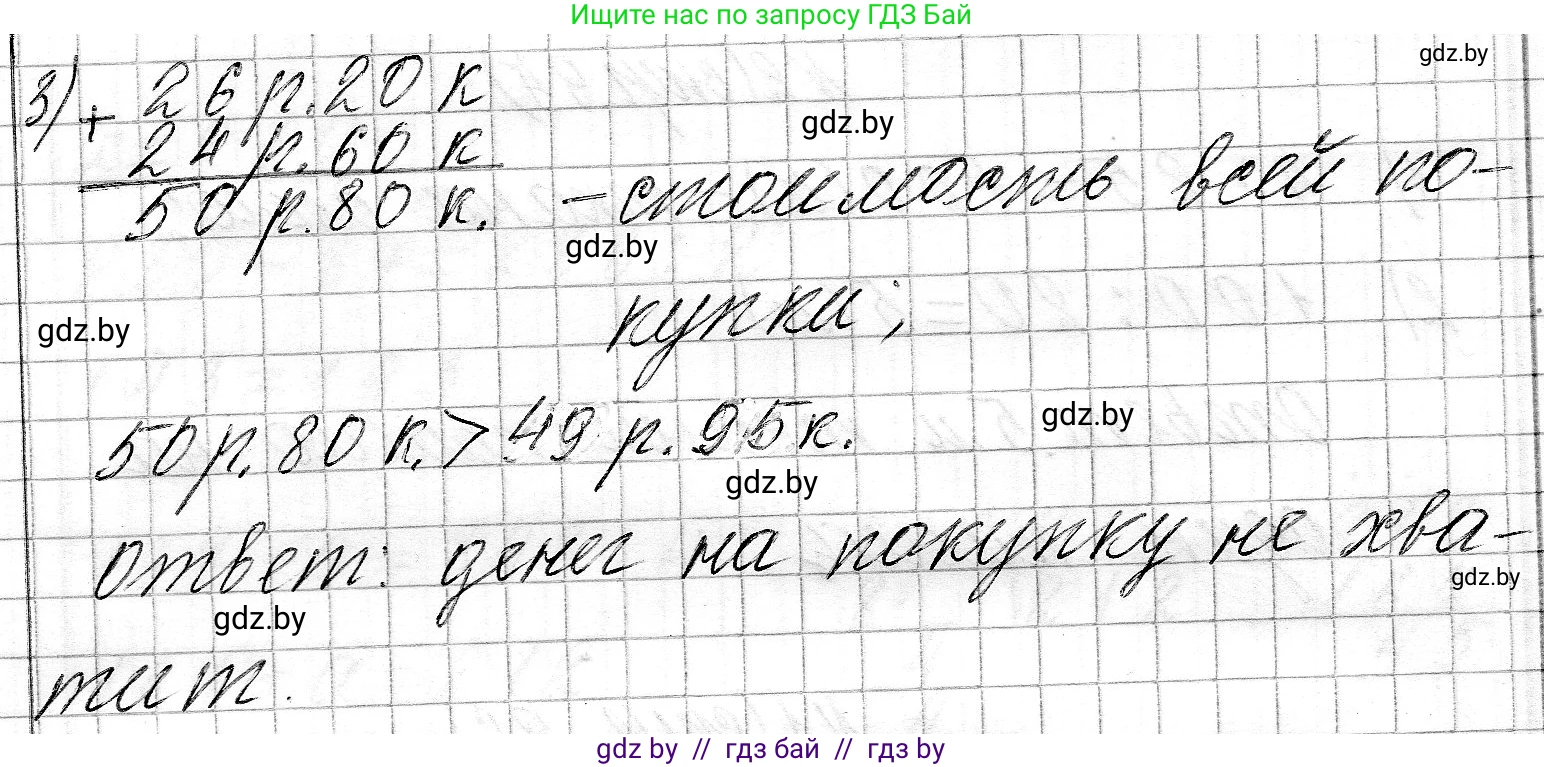 Ищите нас по запросу ГДЗ Бай
gdz.by
3) + 26 р. 20 к
gdz.by
24 р. 60 к
50 р. 80 к. - стоимость всей по-
gdz.by
купки;
gdz.by
50 р. 80 к. > 49 р. 95 к.
gdz.by
gdz.by
ответ: денег на покупку не хва-
gdz.by
gdz.by
тит.
gdz by // гдз бай // гдз by